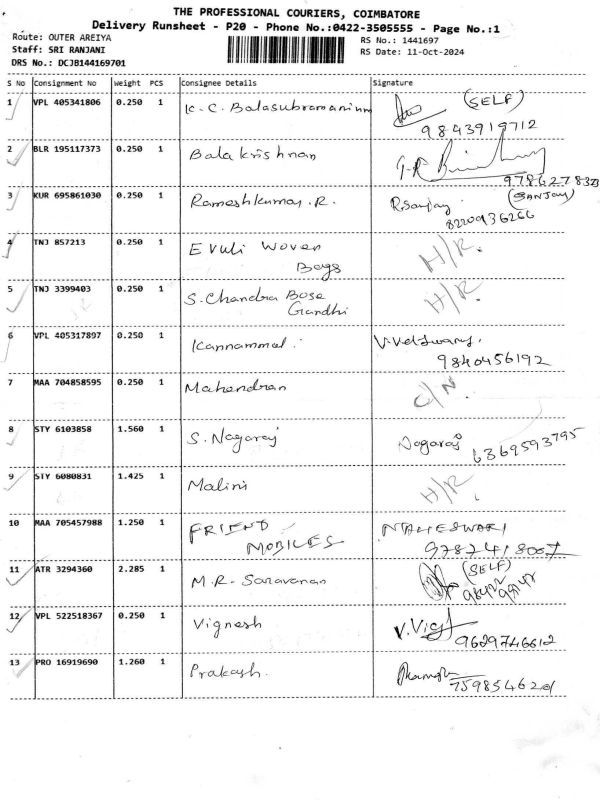 THE PROFESSIONAL COURIERS, COIMBATORE
Delivery Runsheet - P20 - Phone No.:0422-3505555 - Page No.:1
Route: OUTER AREIYA
RS No.: 1441697
Staff: SRI RANJANI
RS Date: 11-Oct-2024
DRS No.: DCJB144169701
S No Consignment No Weight PCS Consignee Details Signature
1 VPL 405341806 0.250 1 K. C. Balasubramanium (SELF)
9843919712
2 BLR 195117373 0.250 1 Balakrishnan
3 KUR 695861030 0.250 1 Rameshkumar. R. R.Sanjay (SANJAY)
8220936266
4 TNJ 857213 0.250 1 Evuli Woven H/R.
Bags
5 TNJ 3399403 0.250 1 S. Chandra Bose H/R.
Gandhi
6 VPL 405317897 0.250 1 Kannammal.
9840456192
7 MAA 704858595 0.250 1 Mahendran C/N.
8 STY 6103858 1.560 1 S. Nagaraj Nagaraj 6369593795
9 STY 6080831 1.425 1 Malini H/R.
10 MAA 705457988 1.250 1 FRIEND
MOBILES 9787418007
11 ATR 3294360 2.285 1 M.R. Saravanan (SELF)
12 VPL 522518367 0.250 1 Vignesh V.Vig
9629746612
13 PRO 16919690 1.260 1 Prakash.